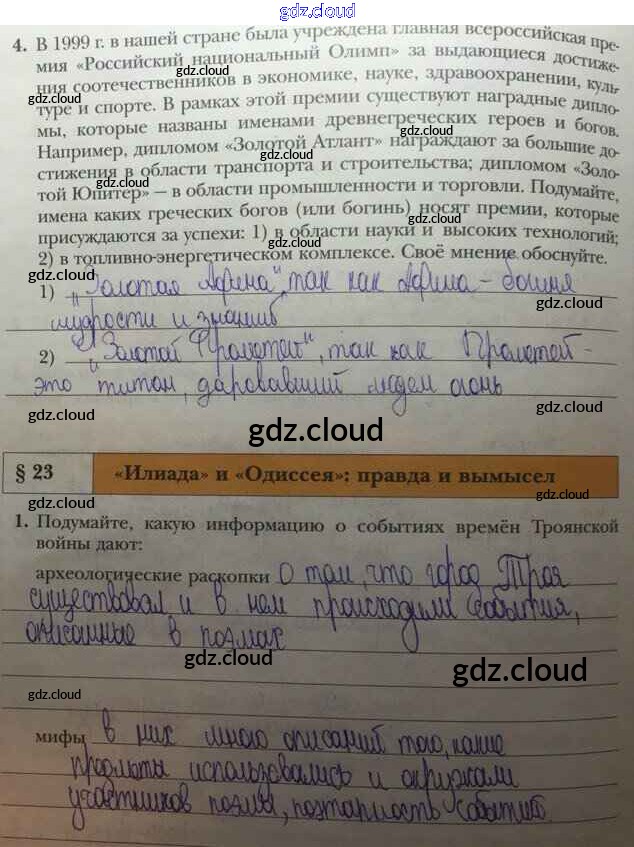 gdz.cloud
4. В 1999 г. в нашей стране была учреждена главная всероссийская пре-
мия «Российский национальный Олимп» за выдающиеся достиже-
ния соотечественников в экономике, науке, здравоохранении, куль-
gdz.cloud gdz.cloud
туре и спорте. В рамках этой премии существуют наградные дипло-
мы, которые названы именами древнегреческих героев и богов.
gdz.cloud
Например, дипломом «Золотой Атлант» награждают за большие до-
gdz.cloud
стижения в области транспорта и строительства; дипломом «Золо-
gdz.cloud
той Юпитер» — в области промышленности и торговли. Подумайте,
имена каких греческих богов (или богинь) носят премии, которые
gdz.cloud
присуждаются за успехи: 1) в области науки и высоких технологий;
2) в топливно-энергетическом комплексе. Своё мнение обоснуйте.
gdz.cloud
1) „Золотая Афина", так как Афина – богиня
gdz.cloud
мудрости и знаний
2) „Золотой Прометей", так как Прометей –
это титан, даровавший людям огонь
gdz.cloud gdz.cloud
gdz.cloud
§ 23 «Илиада» и «Одиссея»: правда и вымысел
gdz.cloud
gdz.cloud
1. Подумайте, какую информацию о событиях времён Троянской
войны дают:
gdz.cloud
археологические раскопки о том, что город Троя
gdz.cloud gdz.cloud
существовал и в нем происходили события,
описанные в поэмах
gdz.cloud
gdz.cloud
gdz.cloud
мифы в них много описаний того, какие
предметы использовались и окружали
gdz.cloud gdz.cloud
участников поэмы, поэтапность событий